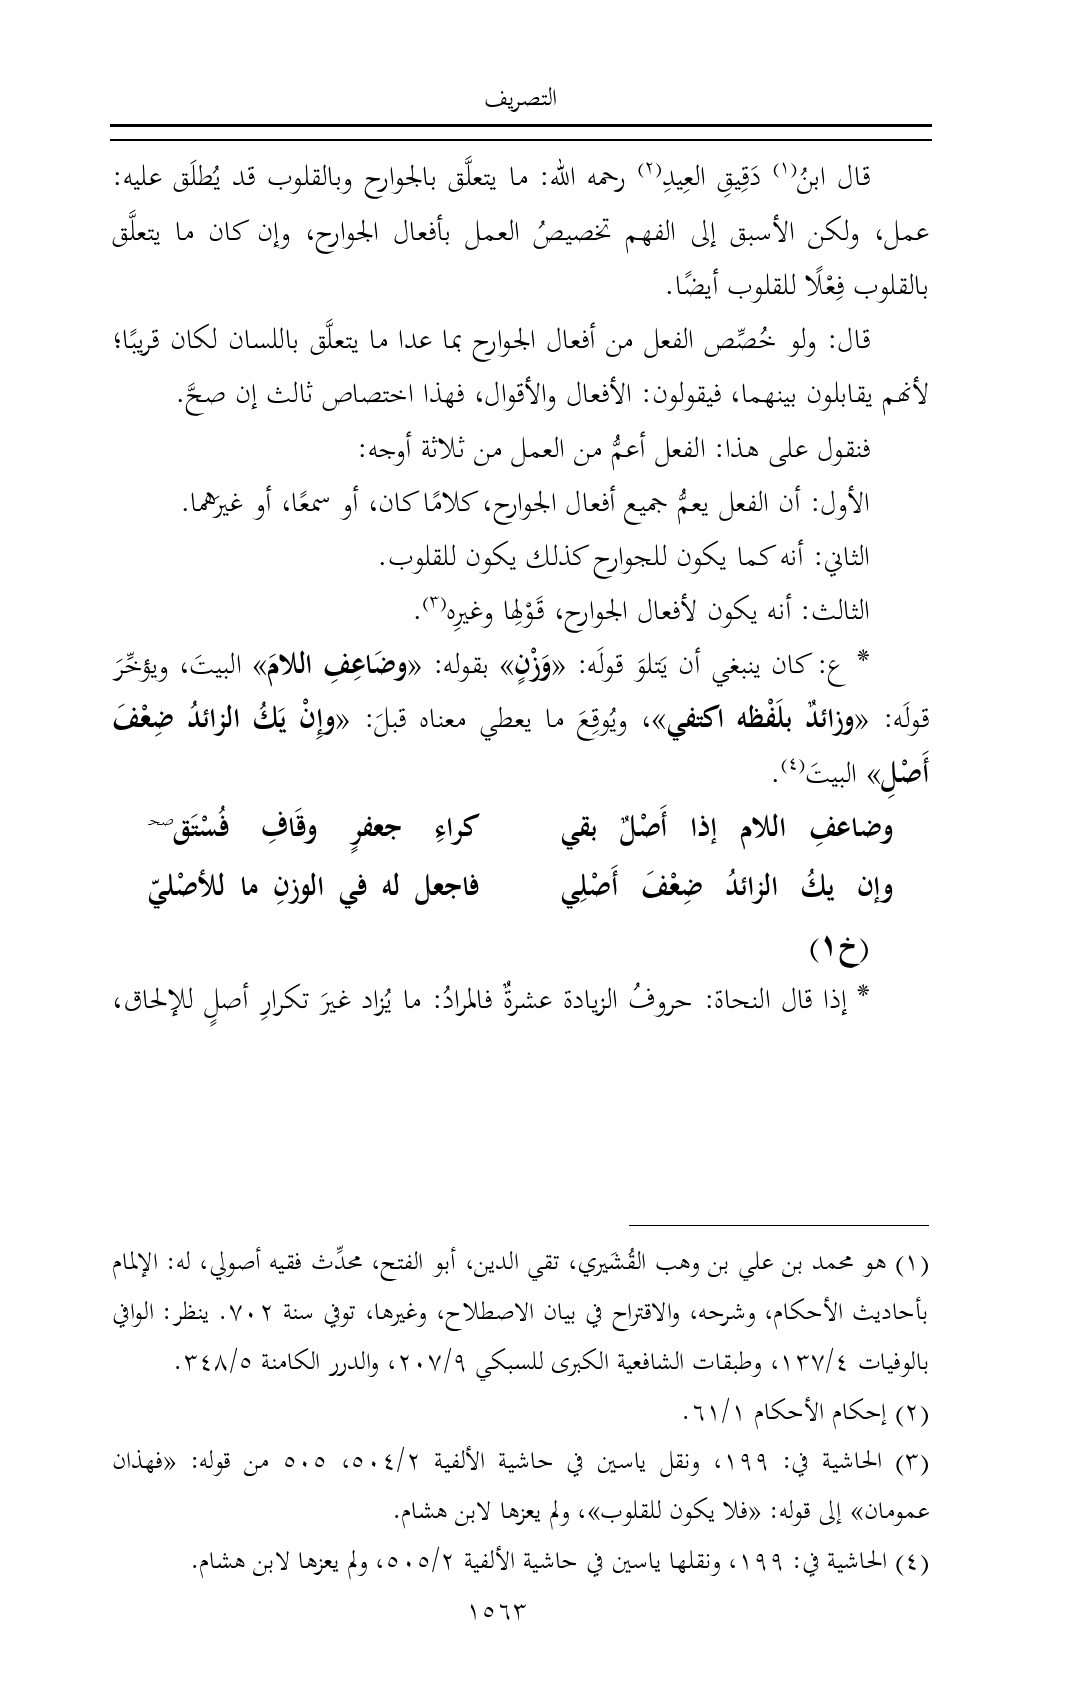 التصريف
قال ابنُ(١) دَقِيقِ العِيدِ(٢) رحمه الله: ما يتعلَّق بالجوارح وبالقلوب قد يُطلَق عليه:
عمل، ولكن الأسبق إلى الفهم تخصيصُ العمل بأفعال الجوارح، وإن كان ما يتعلَّق
بالقلوب فِعْلًا للقلوب أيضًا.
قال: ولو خُصِّص الفعل من أفعال الجوارح بما عدا ما يتعلَّق باللسان لكان قريبًا؛
لأنهم يقابلون بينهما، فيقولون: الأفعال والأقوال، فهذا اختصاص ثالث إن صحَّ.
فنقول على هذا: الفعل أعمُّ من العمل من ثلاثة أوجه:
الأول: أن الفعل يعمُّ جميع أفعال الجوارح، كلامًا كان، أو سمعًا، أو غيرَهما.
الثاني: أنه كما يكون للجوارح كذلك يكون للقلوب.
الثالث: أنه يكون لأفعال الجوارح، قَوْلِها وغيرِه(٣).
* ع: كان ينبغي أن يَتلوَ قولَه: «وَزْنٍ» بقوله: «وضَاعِفِ اللامَ» البيتَ، ويؤخِّرَ
قولَه: «وزائدٌ بلَفْظه اكتفي»، ويُوقِعَ ما يعطي معناه قبلَ: «وإِنْ يَكُ الزائدُ ضِعْفَ
أَصْلِ» البيتَ(٤).
وضاعفِ اللام إذا أَصْلٌ بقي كراءِ جعفرٍ وقَافِ فُسْتَق صح
وإن يكُ الزائدُ ضِعْفَ أَصْلِي فاجعل له في الوزنِ ما للأصْليّ
(خ١)
* إذا قال النحاة: حروفُ الزيادة عشرةٌ فالمرادُ: ما يُزاد غيرَ تكرارِ أصلٍ للإلحاق،
(١) هو محمد بن علي بن وهب القُشَيري، تقي الدين، أبو الفتح، محدِّث فقيه أصولي، له: الإلمام
بأحاديث الأحكام، وشرحه، والاقتراح في بيان الاصطلاح، وغيرها، توفي سنة ٧٠٢. ينظر: الوافي
بالوفيات ١٣٧/٤، وطبقات الشافعية الكبرى للسبكي ٢٠٧/٩، والدرر الكامنة ٣٤٨/٥.
(٢) إحكام الأحكام ٦١/١.
(٣) الحاشية في: ١٩٩، ونقل ياسين في حاشية الألفية ٥٠٤/٢، ٥٠٥ من قوله: «فهذان
عمومان» إلى قوله: «فلا يكون للقلوب»، ولم يعزها لابن هشام.
(٤) الحاشية في: ١٩٩، ونقلها ياسين في حاشية الألفية ٥٠٥/٢، ولم يعزها لابن هشام.
١٥٦٣